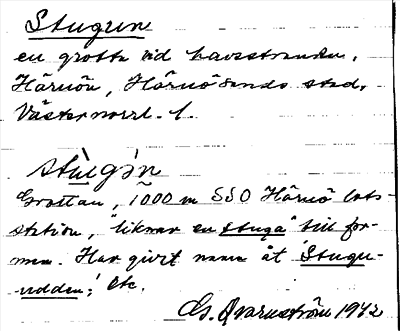 Stugun
en grotta vid havsstranden,
Härnön, Härnösands stad,
Västernorrl. l.
stùgo̩n
Grottan, 1000 m SSO Härnö lots-
station, "liknar en stuga" till for-
men. Har givit namn åt 'Stugu-
udden', etc.
G. Qvarnström 1942